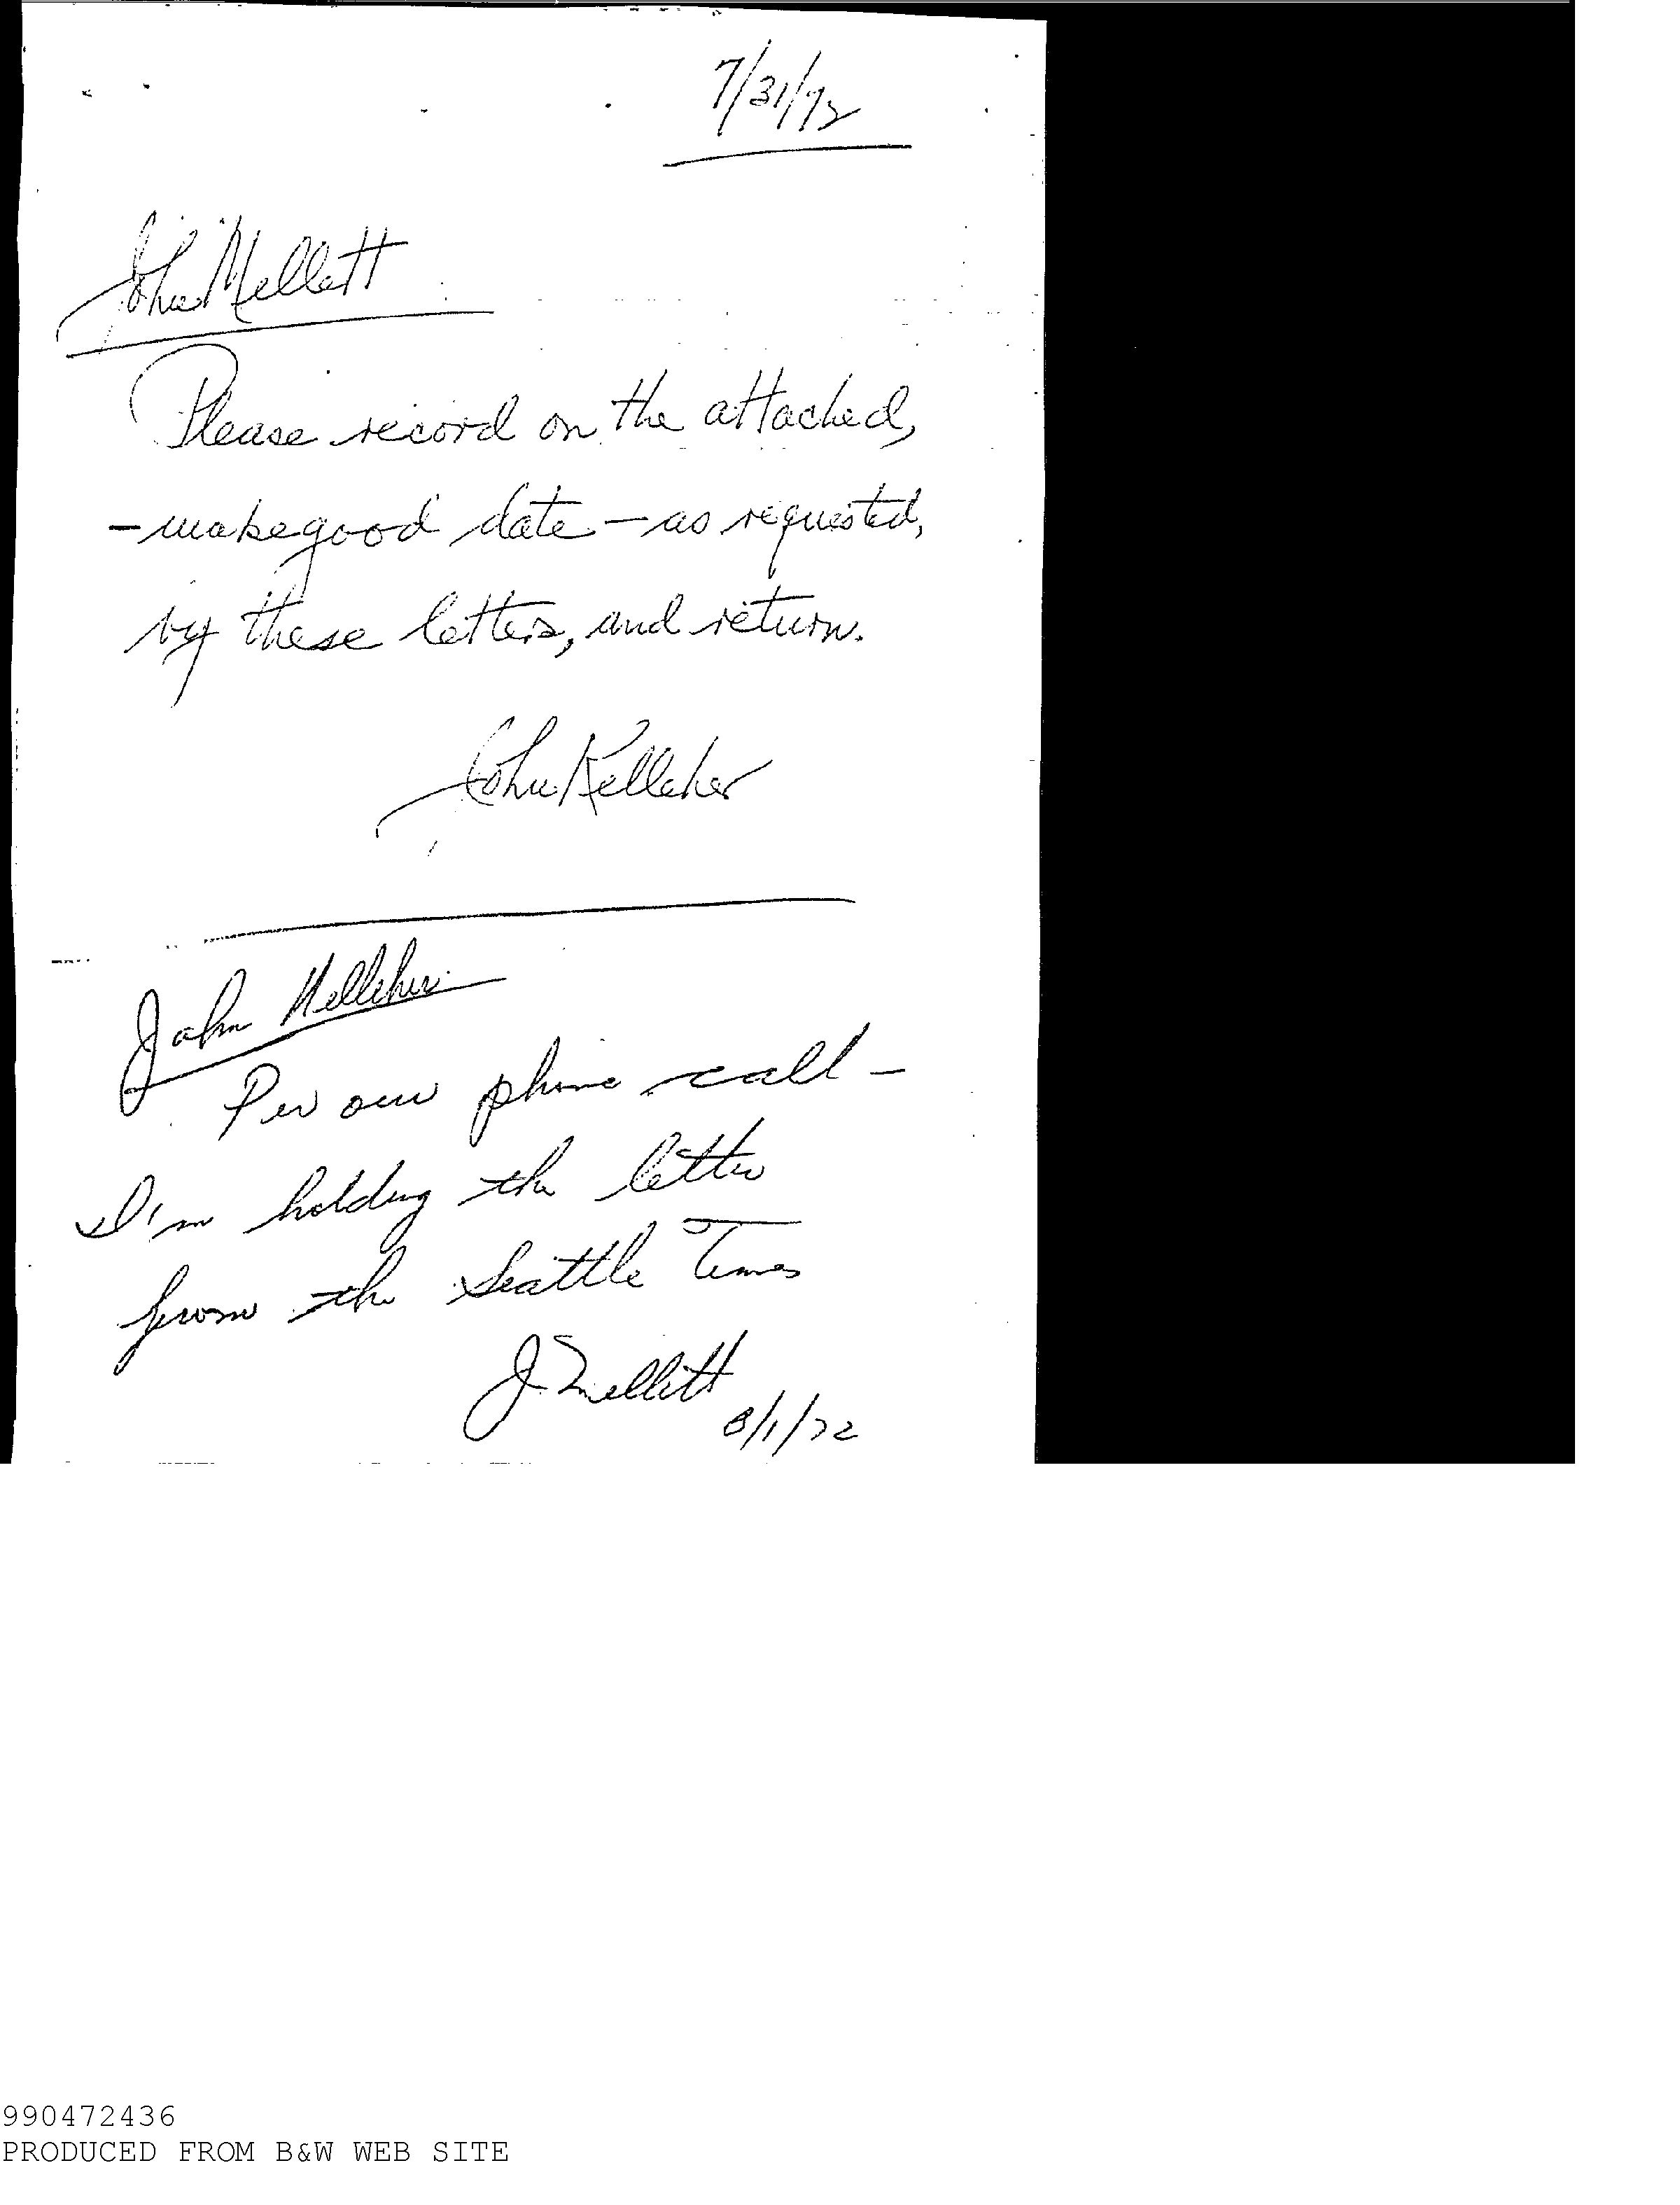 7/31/72
John Mellett
Please record on the attached,
- makegood date - as requested,
by these letters, and return.
John Kelleher
John Kelleher
Per our phone call -
I'm holding the letter
from the Seattle Times
J. Mellett
8/1/72
990472436
PRODUCED FROM B&W WEB SITE